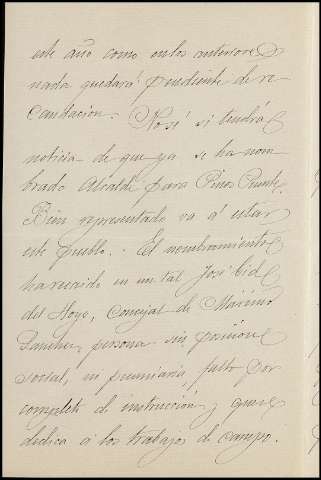 este año como en los anteriores
nada quedará pendiente de re-
caudación. No sé si tendrá
noticia de que ya se ha nom-
brado Alcalde para Pinos Puente.
Bien representado va á estar
este pueblo. El nombramiento
ha recaido en un tal José Cid
del Hoyo, Concejal de Marino
Sanchez, persona sin posicion
social, ni pecuniaria, falto por
completo de instrucción y que se
dedica á los trabajos de campo.